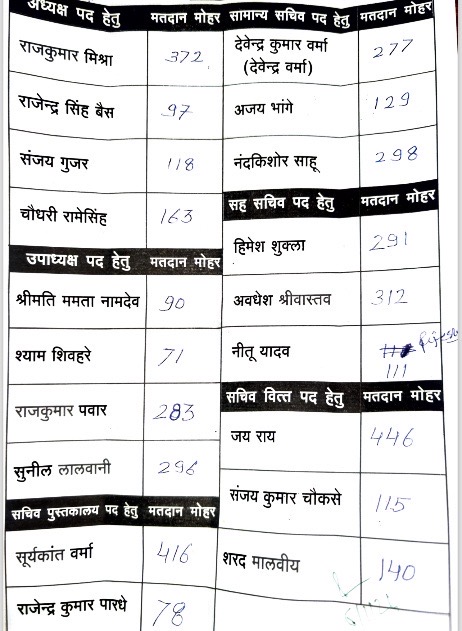 अध्यक्ष पद हेतु मतदान मोहर
राजकुमार मिश्रा 372
राजेन्द्र सिंह बैस 97
संजय गुजर 118
चौधरी रामेसिंह 163
उपाध्यक्ष पद हेतु मतदान मोहर
श्रीमति ममता नामदेव 90
श्याम शिवहरे 71
राजकुमार पवार 283
सुनील लालवानी 296
सचिव पुस्तकालय पद हेतु मतदान मोहर
सूर्यकांत वर्मा 416
राजेन्द्र कुमार पारधे 78
सामान्य सचिव पद हेतु मतदान मोहर
देवेन्द्र कुमार वर्मा 277
(देवेन्द्र वर्मा)
अजय भांगे 129
नंदकिशोर साहू 298
सह सचिव पद हेतु मतदान मोहर
हिमेश शुक्ला 291
अवधेश श्रीवास्तव 312
नीतू यादव 111
सचिव वित्त पद हेतु मतदान मोहर
जय राय 446
संजय कुमार चौकसे 115
शरद मालवीय 140